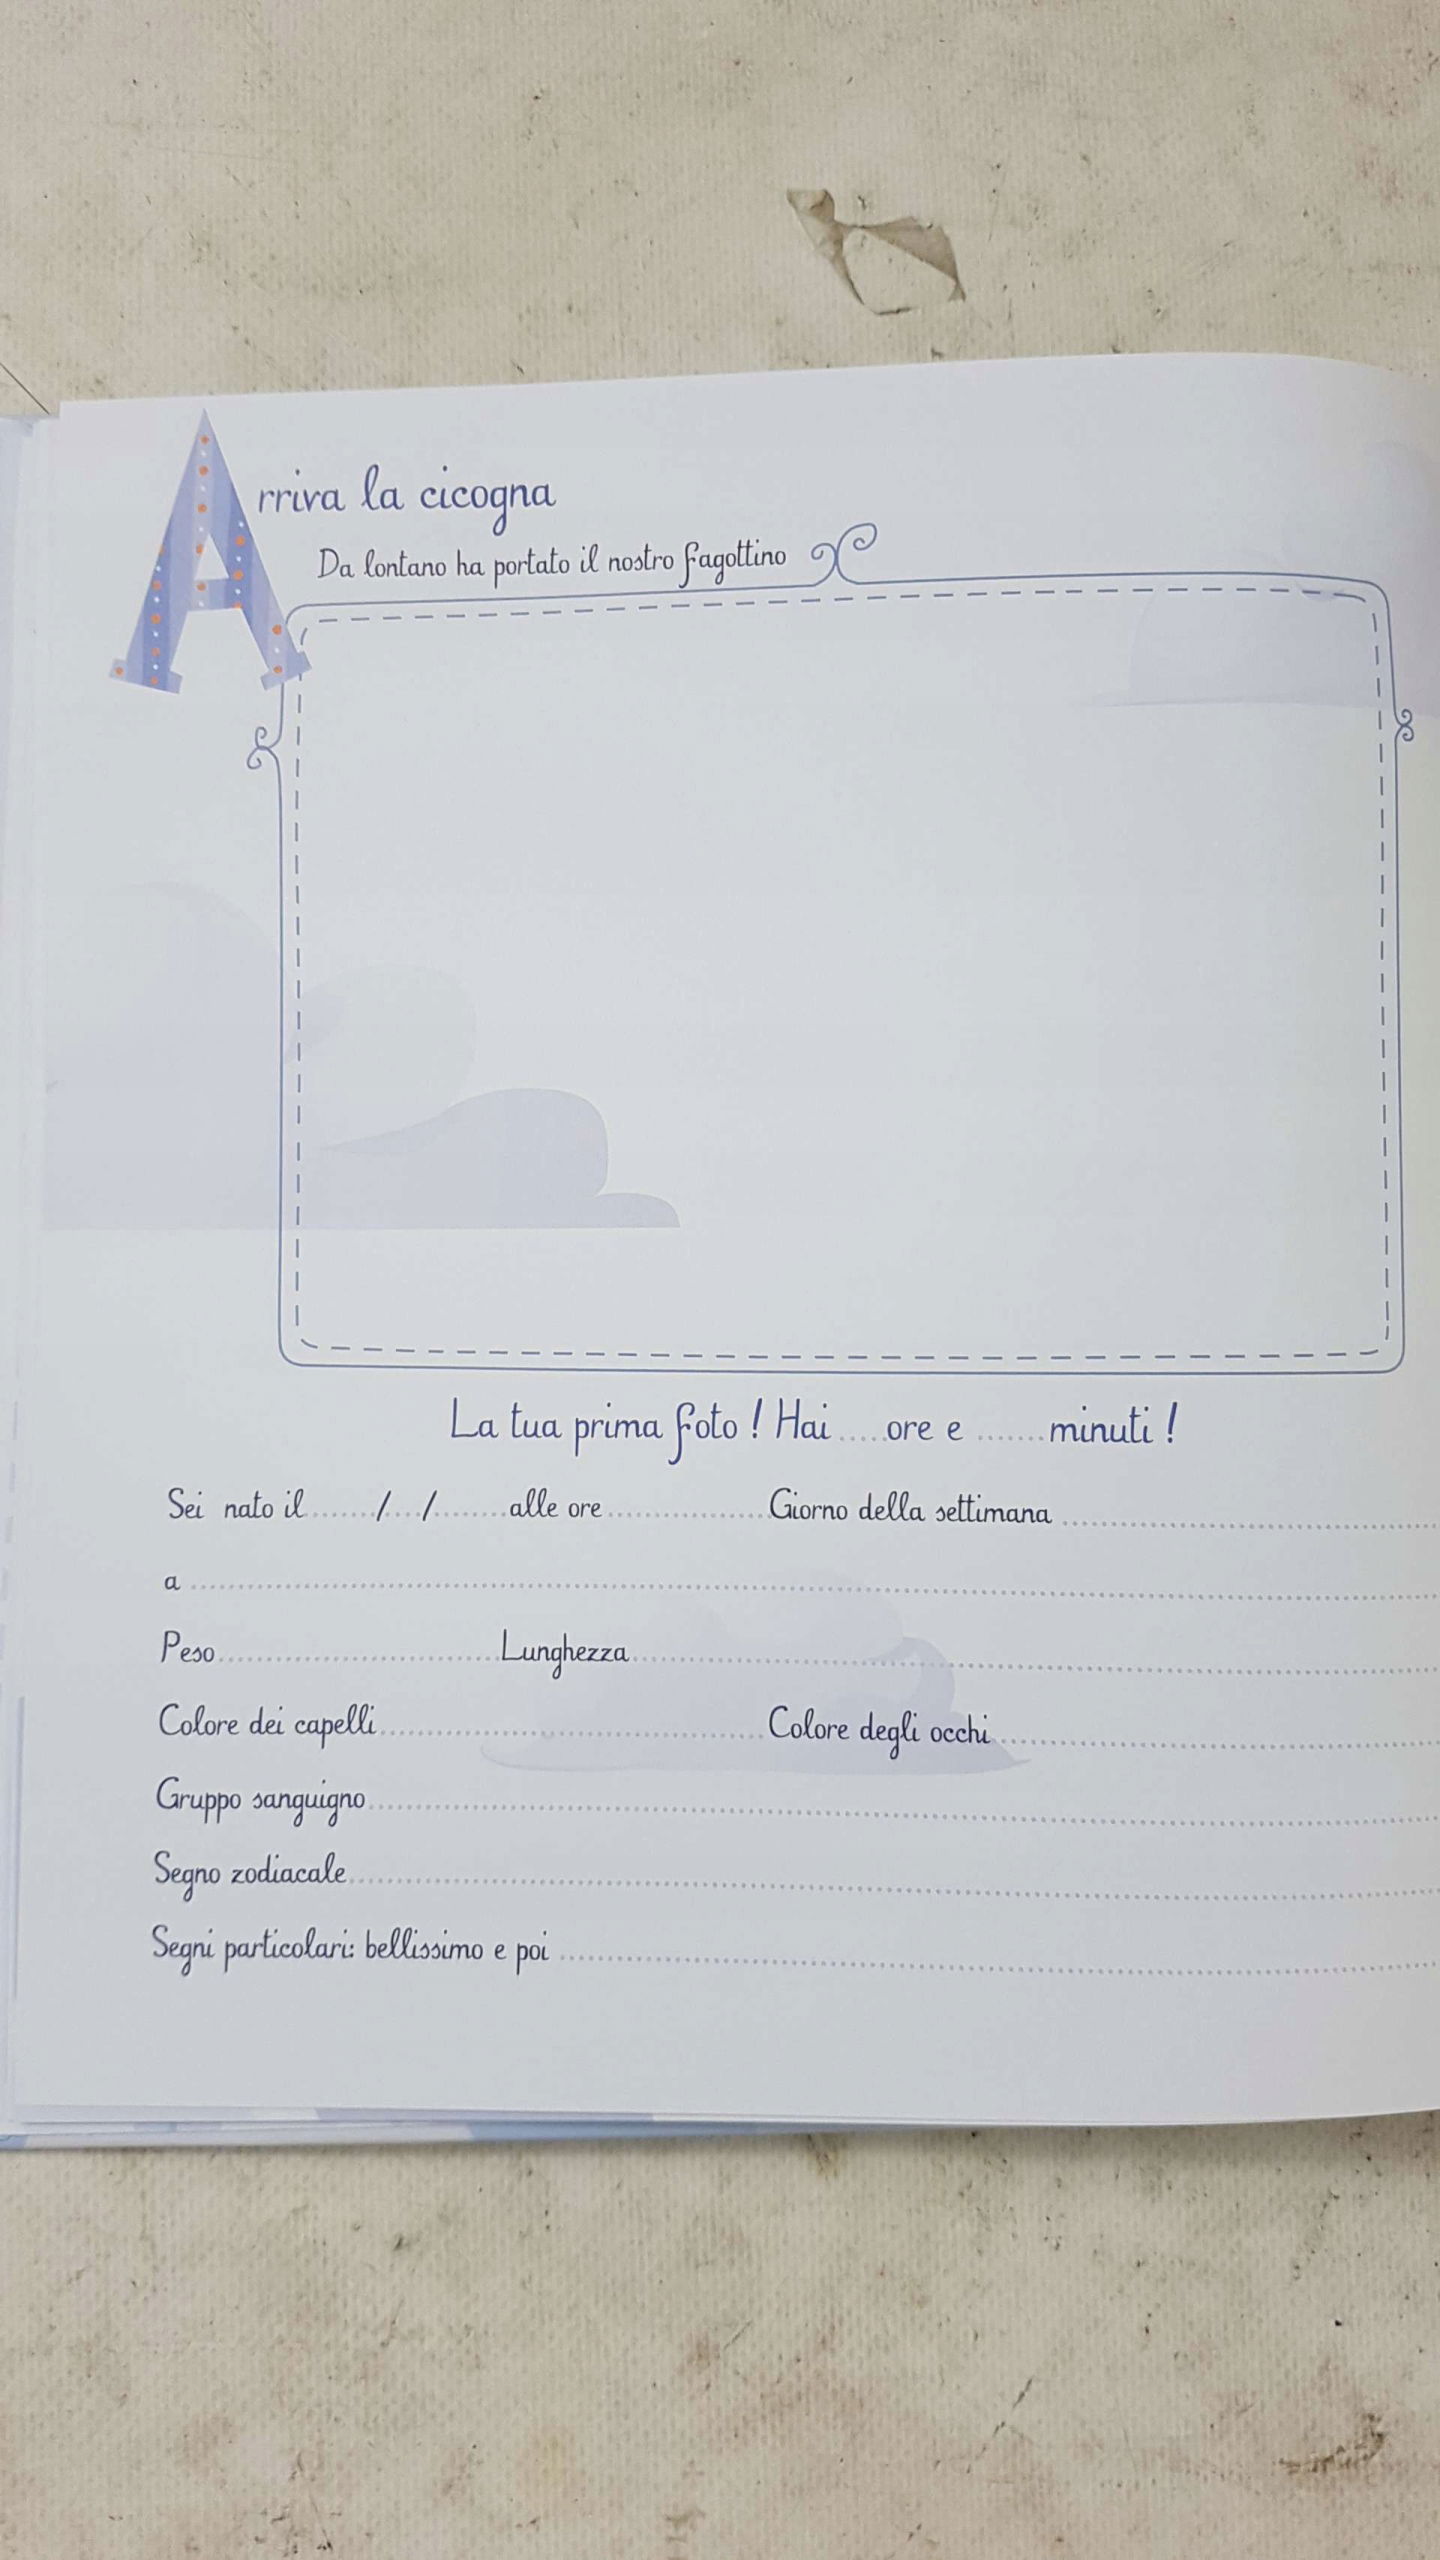 Arriva la cicogna
Da lontano ha portato il nostro fagottino
La tua prima foto ! Hai .....ore e .......minuti !
Sei nato il......../..../........alle ore..................Giorno della settimana ..........................................
a ....................................................................................................
Peso..............................Lunghezza..............................................................
Colore dei capelli..........................................Colore degli occhi................................................
Gruppo sanguigno....................................................................................................
Segno zodiacale....................................................................................................
Segni particolari: bellissimo e poi ..........................................................................................